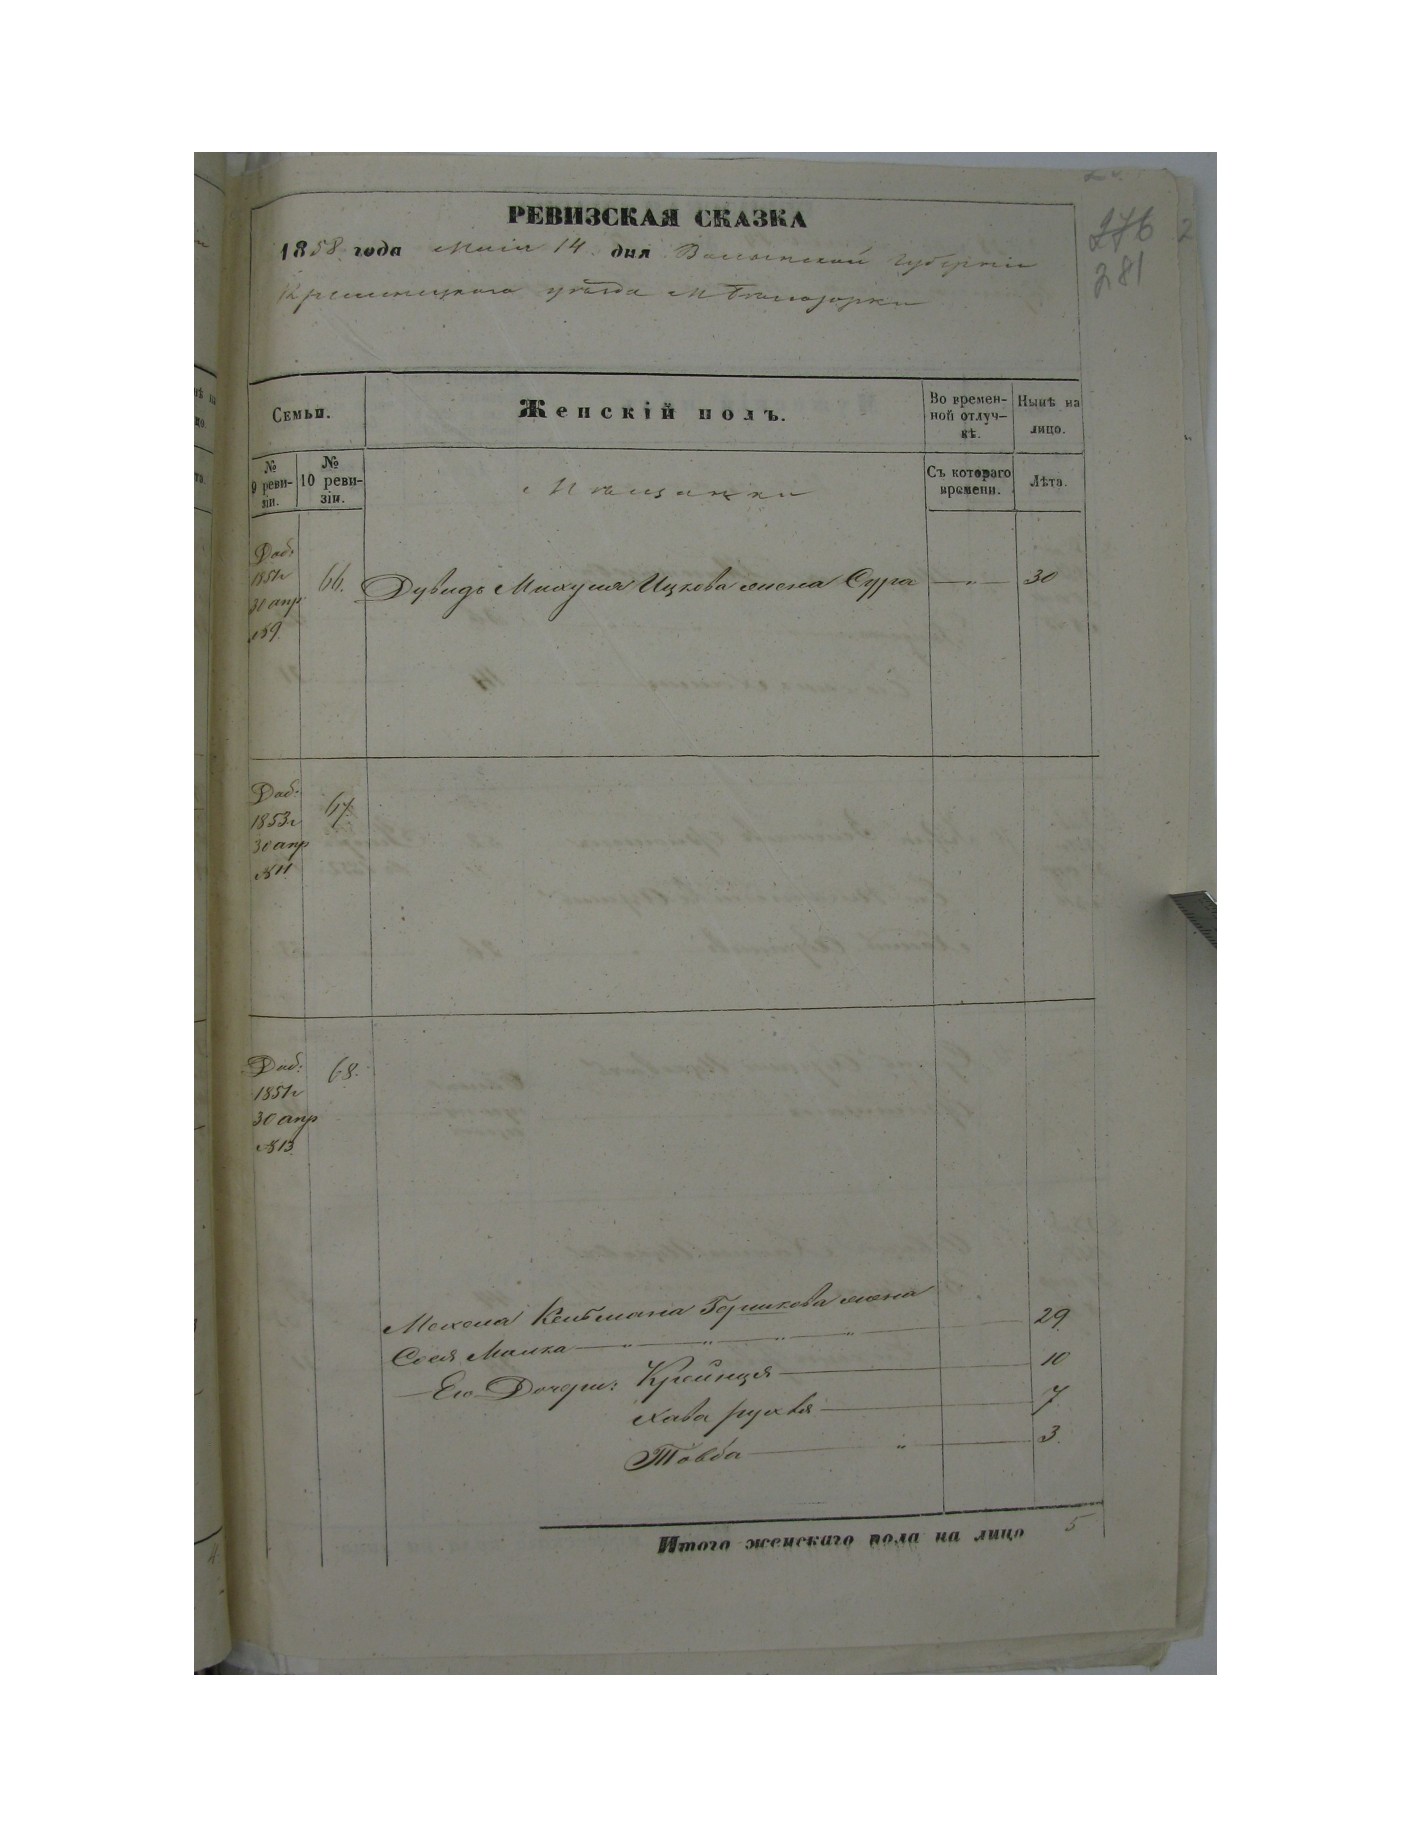 276
281
2
РЕВИЗСКАЯ СКАЗКА
1858 года Маія 14 дня Волынской Губерніи
Кременецкаго уѣзда м Бѣлозорки
Семьи.
Женскій полъ.
Во времен-
ной отлуч-
кѣ.
Нынѣ на
лицо.
№
9 реви-
зіи.
№
10 реви-
зіи.
Мѣщанки
Съ котораго
времени.
Лѣта.
Доб:
1851г
30 апр
№9.
66. Дувидъ Михуля Ицкова жена Сура — „ — 30
Доб:
1853г
30 апр
№11
67.
Доб:
1851г
30 апр
№13
68.
Мехеля Кельмана Гершкова жена
Сося Малка — „ — „ — „ — „ — 29
Его Дочери: Крейнця — 10
Хава рухля — 7
Товба — „ — 3
Итого женскаго пола на лицо 5